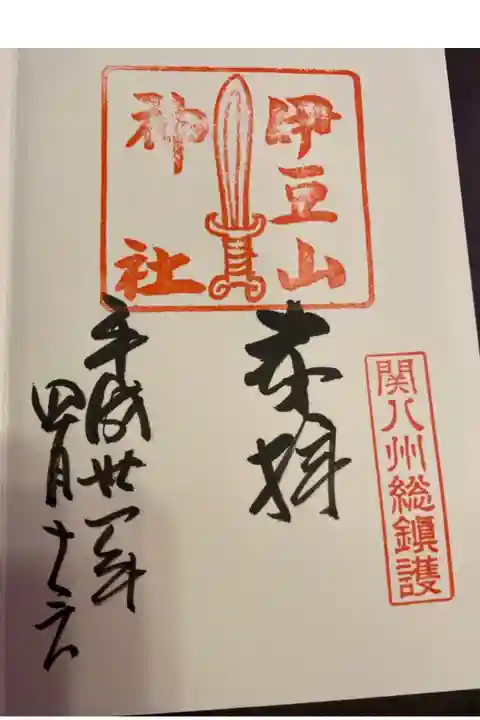 関八州総鎮護
伊豆山
神社
奉拝
平成廿一年
四月十六